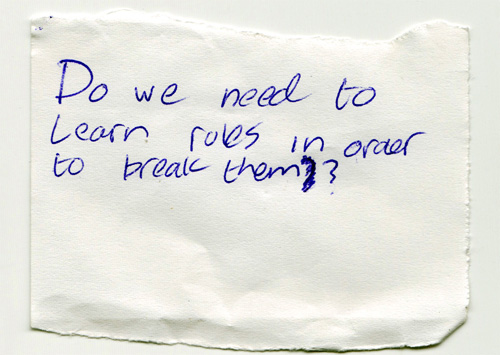 Do we need to
Learn rules in order
to break them?